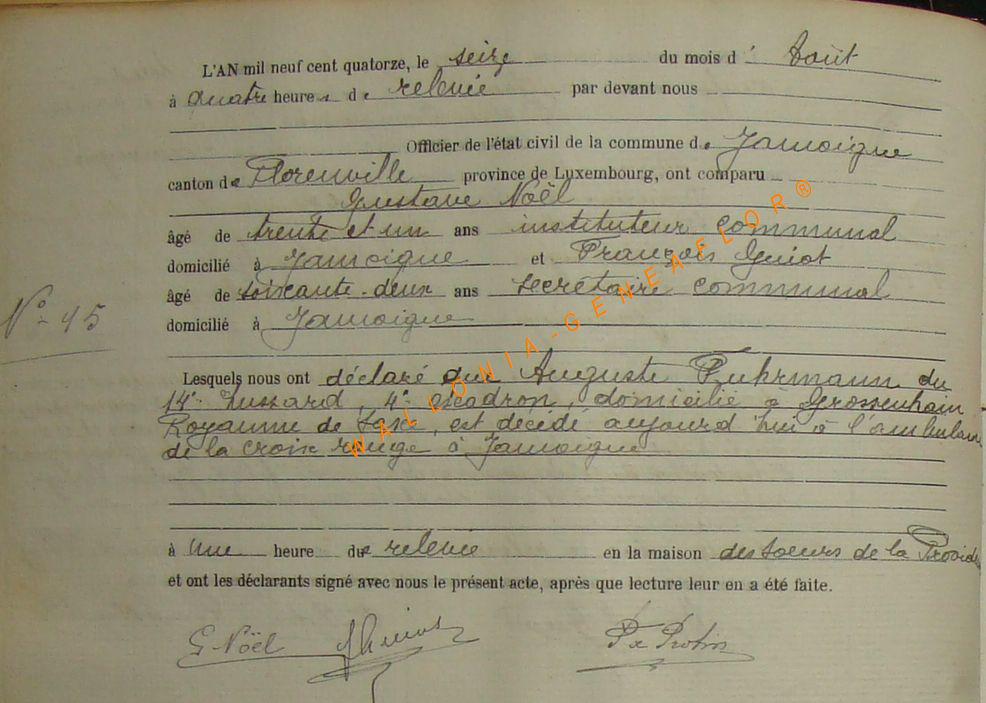 L'AN mil neuf cent quatorze, le seize du mois d' Août
à quatre heures de relevée par devant nous
Officier de l'état civil de la commune de Jamoigne
canton de Florenville province de Luxembourg, ont comparu
Gustave Noël
âgé de trente et un ans instituteur communal
domicilié à Jamoigne et François Guiot
âgé de soixante-deux ans secrétaire communal
domicilié à Jamoigne
N° 45
Lesquels nous ont déclaré que Auguste Fuhrmann du
14e Hussard, 4e escadron, domicilié à Grossenhain
Royaume de Saxe, est décédé aujourd'hui à l'ambulan
de la croix rouge à Jamoigne
à une heure de relevée en la maison des Soeurs de la Provide
et ont les déclarants signé avec nous le présent acte, après que lecture leur en a été faite.
G. Noël
WALLONIA-GENEAFLOR®